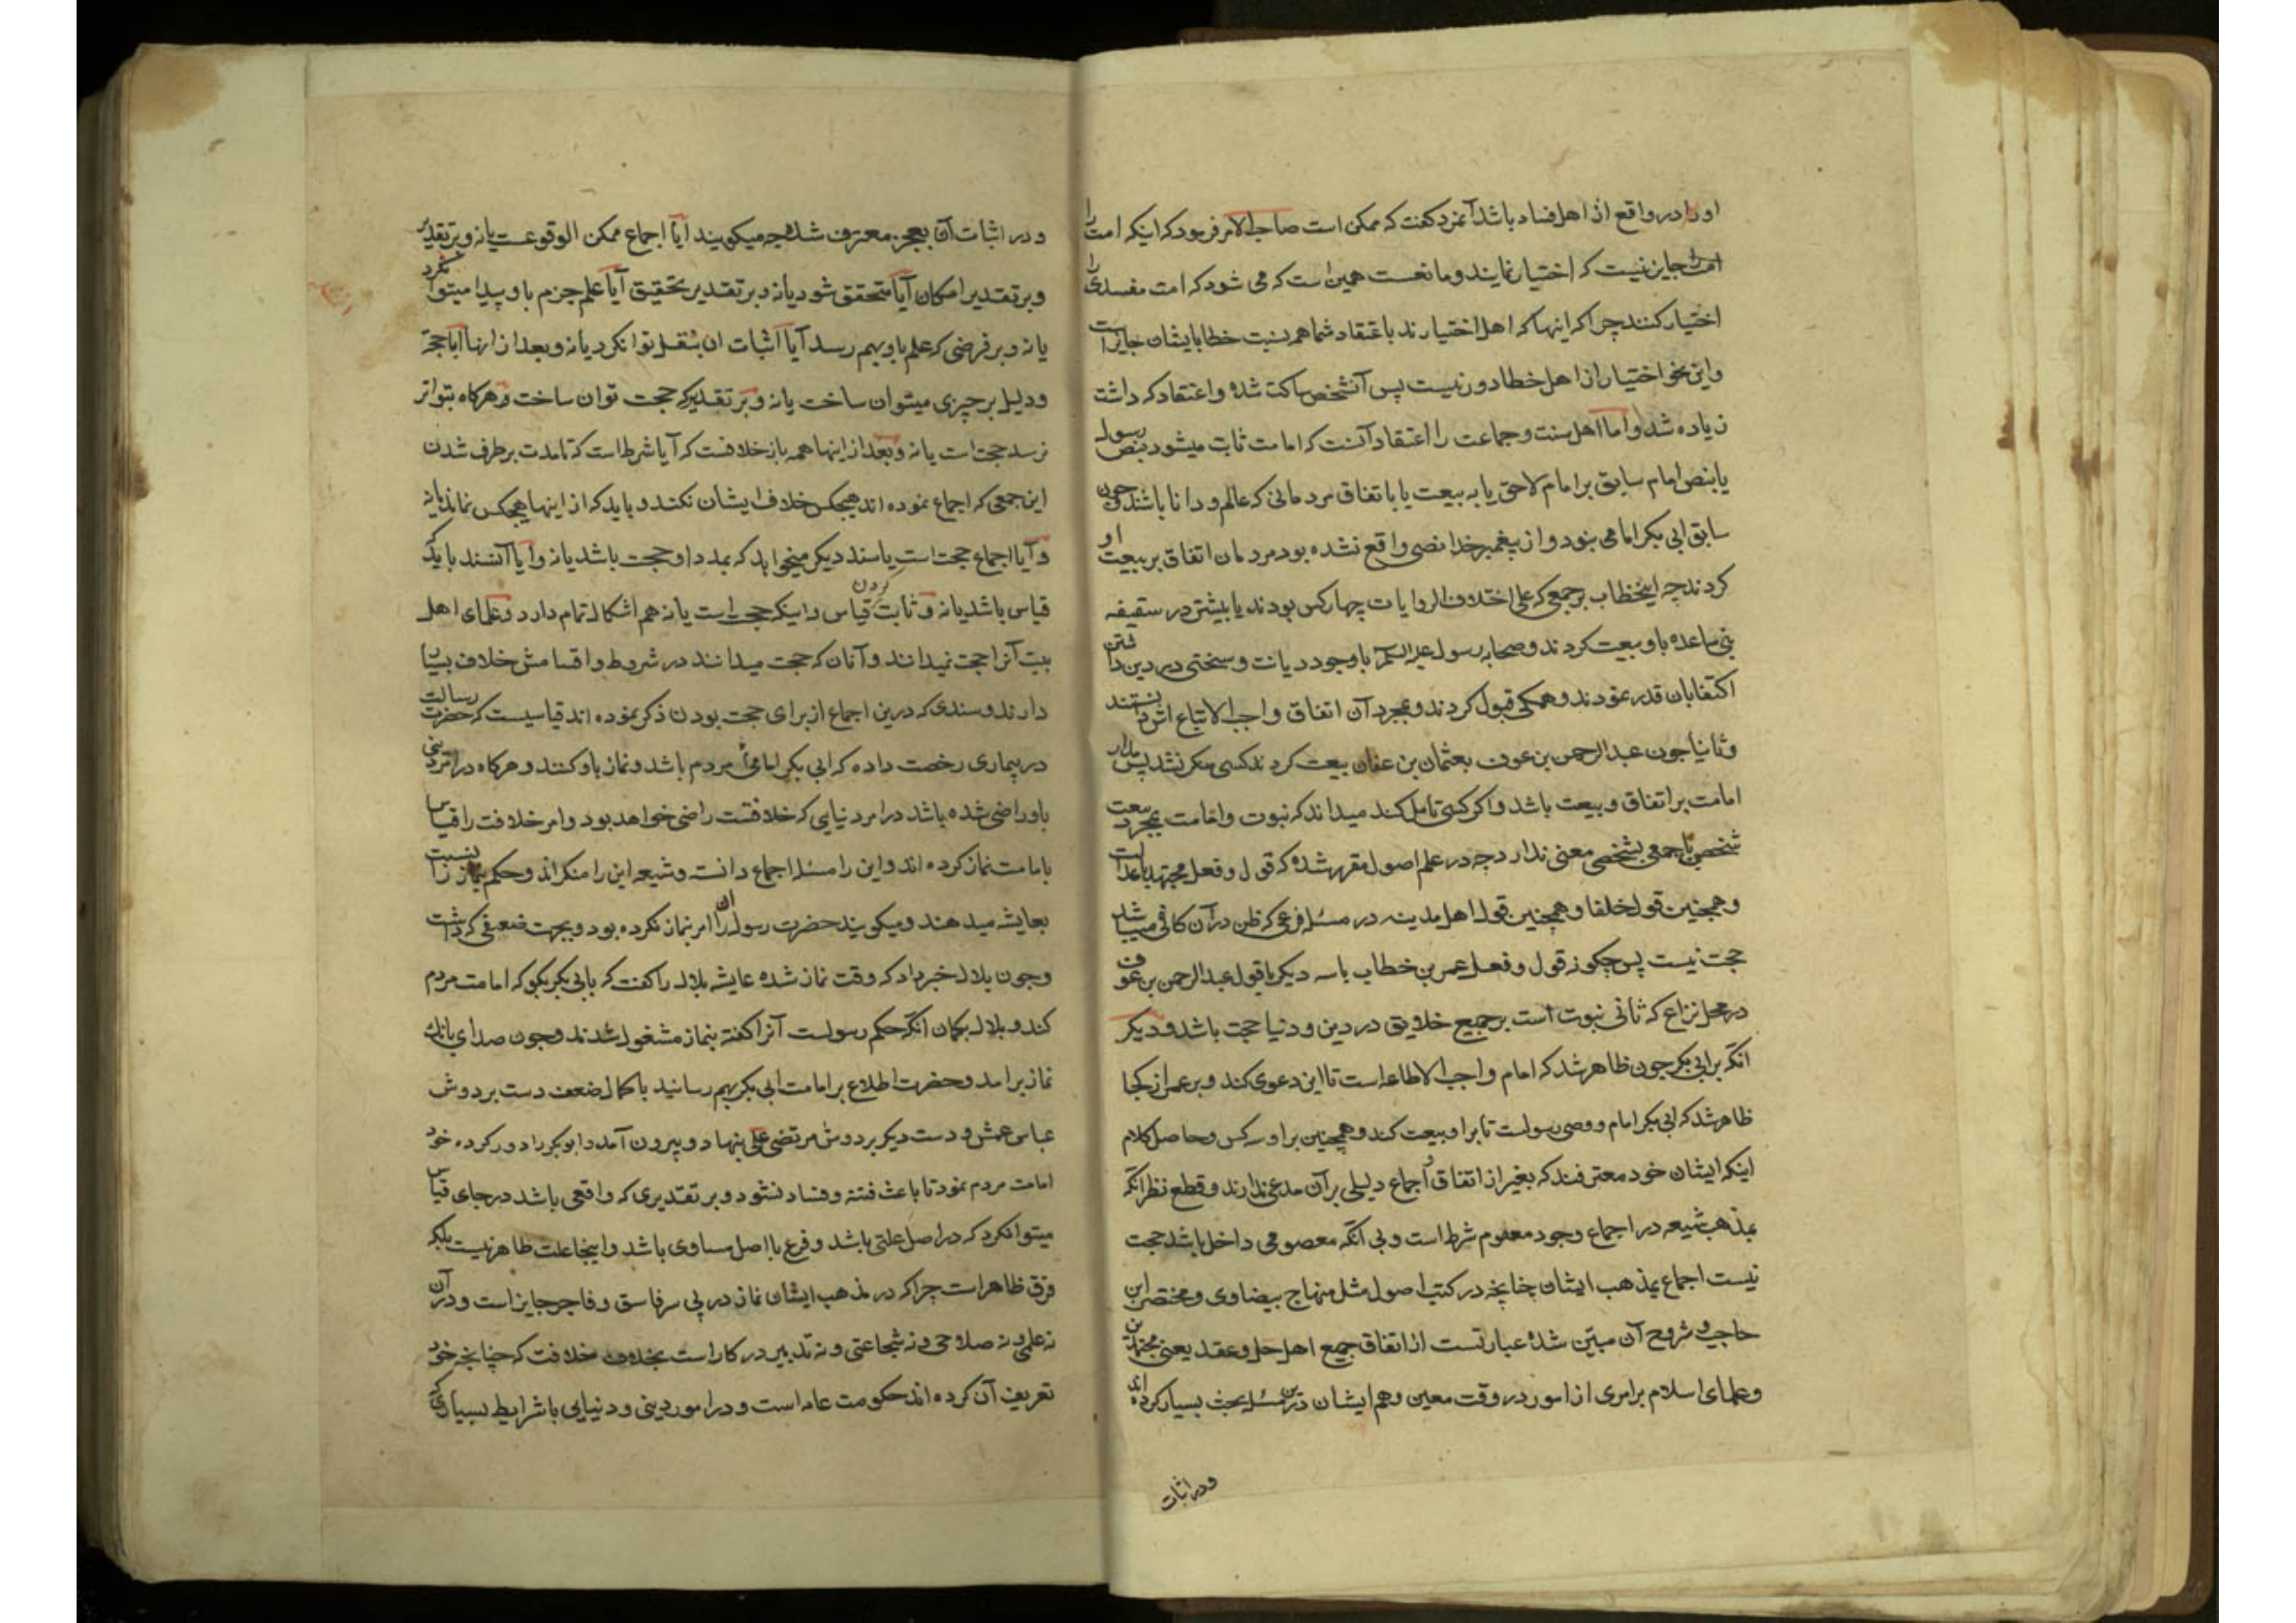 او را در واقع از اهل فساد باشد آنمرد کفت که ممکن است صاحب الامر فرمود که اینکه امت را
امت را جایز نیست که اختیار نمایند و مانعست همین است که می شود که امت مفسدی را
اختیار کنند چرا که اینها که اهل اختیارند باعتقاد شما هم نسبت خطا بایشان جایز است
واین نحو اختیار از اهل خطا دور نیست پس آنشخص ساکت شده واعتقاد که داشت
زیاده شد واما اهل سنت وجماعت را اعتقاد آنست که امامت ثابت میشود بنص رسول
یا بنص امام سابق بر امام لاحق یا به بیعت یا باتفاق مردمانی که عالم و دانا باشند و چون
سابق ابی بکر امامی نبود و از پیغمبر خدا نصی واقع نشده بود مردمان اتفاق بر بیعت او
کردند چه ابنخطاب بر جمعی که علی اختلاف الروایات چهار کس بودند یا بیشتر در سقیفه
بنی ساعده باو بیعت کردند وصحابه رسول علیه السلم باوجود دیانت وسختی در دین داشتن
اکتفا بان قدر نمودند وهمکی قبول کردند و بمجرد آن اتفاق واجب الاتباع اش دانستند
وثانیا جون عبدالرحمن بن عوف بعثمان بن عفان بیعت کرد ندکسی منکر نشد پس مدار
امامت بر اتفاق و بیعت باشد واکر کسی تامل کند میداند که نبوت وامامت بمجرد بیعت
شخصی یا جمعی بشخصی معنی ندارد چه در علم اصول مقرر شده که قول وفعل مجتهد باعدالت
وهمچنین قول خلفا وهمچنین قول اهل مدینه در مسئله فرعی که ظن در آن کافی میباشد
حجت نیست پس چکونه قول وفعل عمر بن خطاب باسه دیکر یا قول عبدالرحمن بن عوف
در محل نزاع که ثانی نبوت است بر جمیع خلایق در دین ودنیا حجت باشد و دیکر
انکه بر ابی بکر جون ظاهر شد که امام واجب الاطاعه است تا این دعوی کند وبر عمر از کجا
ظاهر شد که ابی بکر امام ووصی رسولست تا برا و بیعت کند وهمچنین بر او سه کس وحاصل کلام
اینکه ایشان خود معترفند که بغیر از اتفاق و اجماع دلیلی بر آن مدعی ندارند وقطع نظر انکه
بمذهب شیعه در اجماع وجود معصوم شرط است وبی انکه معصومی داخل باشد حجت
نیست اجماع بمذهب ایشان چنانچه در کتب اصول مثل منهاج بیضاوی ومختصر ابن
حاجب وشروح آن مبین شده عبارتست از اتفاق جمیع اهل حل وعقد یعنی مجتهدین
وعلمای اسلام بر امری از امور در وقت معین وهم ایشان درین مسئله بحث بسیار کرده اند
ودر اثبات
ودر اثبات آن بعجز معترف شده چه میکویند آیا اجماع ممکن الوقوعست یا نه وبر تقدیر
وبر تقدیر امکان آیا متحقق شود یا نه وبر تقدیر تحقیق آیا علم جزم باو پیدا میتوان کرد
یا نه وبر فرضی که علم باو بهم رسد آیا اثبات ان بنقل توانکرد یا نه وبعد از اینها آیا حجة
ودلیل بر چیزی میتوان ساخت یا نه وبر تقدیر که حجت توان ساخت وهرکاه بتواتر
نرسد حجت است یا نه وبعد از اینها همه باز خلافست که آیا شرط است که تا مدت بر طرف شدن
این جمعی که اجماع نموده اند هیچکس خلاف ایشان نکند و باید که از اینها هیچکس نماند یا نه
وآیا اجماع حجت است یا سند دیکر میخواهد که بمدد او حجت باشد یا نه وآیا آنسند باید که
قیاس باشد یا نه وثابت کردن قیاس واینکه حجت است یا نه هم اشکال تمام دارد وعلمای اهل
بیت آنرا حجت نمیدانند وآنان که حجت میدانند در شروط واقسامش خلاف بسیار
دارند وسندی که درین اجماع از برای حجت بودن ذکر نموده اند قیاسیست که حضرت رسالت
در بیماری رخصت داده که ابی بکر امام مردم باشد ونماز باو کنند وهرکاه در امر دینی
باو راضی شده باشد در امر دنیایی که خلافتست راضی خواهد بود وامر خلافت را قیاس
بامامت نماز کرده اند واین را مسئله اجماع دانست وشیعه این را منکراند وحکم نماز را نسبت
بعایشه میدهند ومیکویند حضرت رسول او را امر بنماز نکرده بود وبجهت ضعفی که داشت
وجون بلال خبر داد که وقت نماز شده عایشه بلال را کفت که بابی بکر بکو که امامت مردم
کند وبلال بکمان انکه حکم رسولست آنرا کفته بنماز مشغول شدند وجون صدای بانک
نماز برامد وحضرت اطلاع بر امامت ابی بکر بهم رسانید با کمال ضعف دست بر دوش
عباس عمش ودست دیکر بر دوش مرتضی علی بنهاد وبیرون آمد وابوبکر را دور کرده خود
امامت مردم نمود تا باعث فتنه وفساد نشود وبر تقدیری که واقعی باشد در جای قیاس
میتوانکرد که در اصل علتی باشد وفرع بااصل مساوی باشد واینجا علت ظاهر نیست بلکه
فرق ظاهر است چرا که در مذهب ایشان نماز در پی سر فاسق وفاجر جایز است ودر آن
نه علمی ونه صلاحی ونه شجاعتی ونه تدبیر در کار است بخلاف خلافت که چنانچه خود
تعریف آن کرده اند حکومت عامه است ودر امور دینی ودنیایی با شرایط بسیاری که